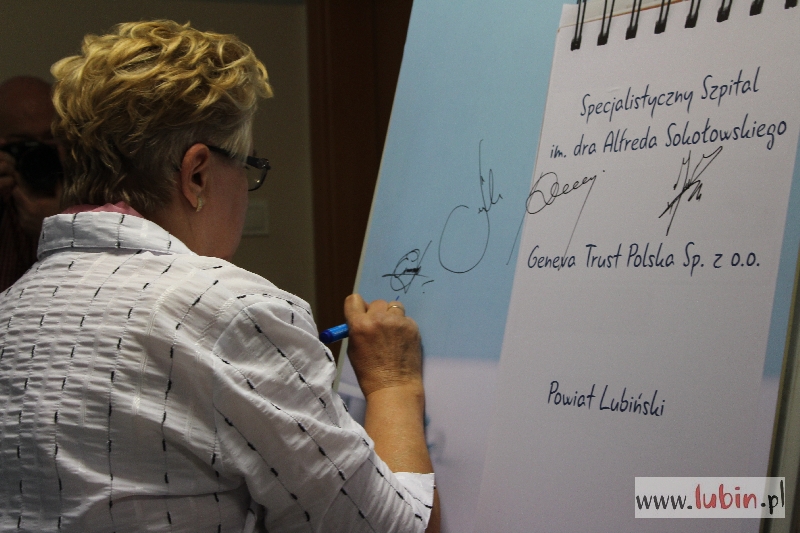 Specjalistyczny Szpital
im. dra Alfreda Sokołowskiego
Geneva Trust Polska Sp. z o.o.
Powiat Lubiński
www.lubin.pl